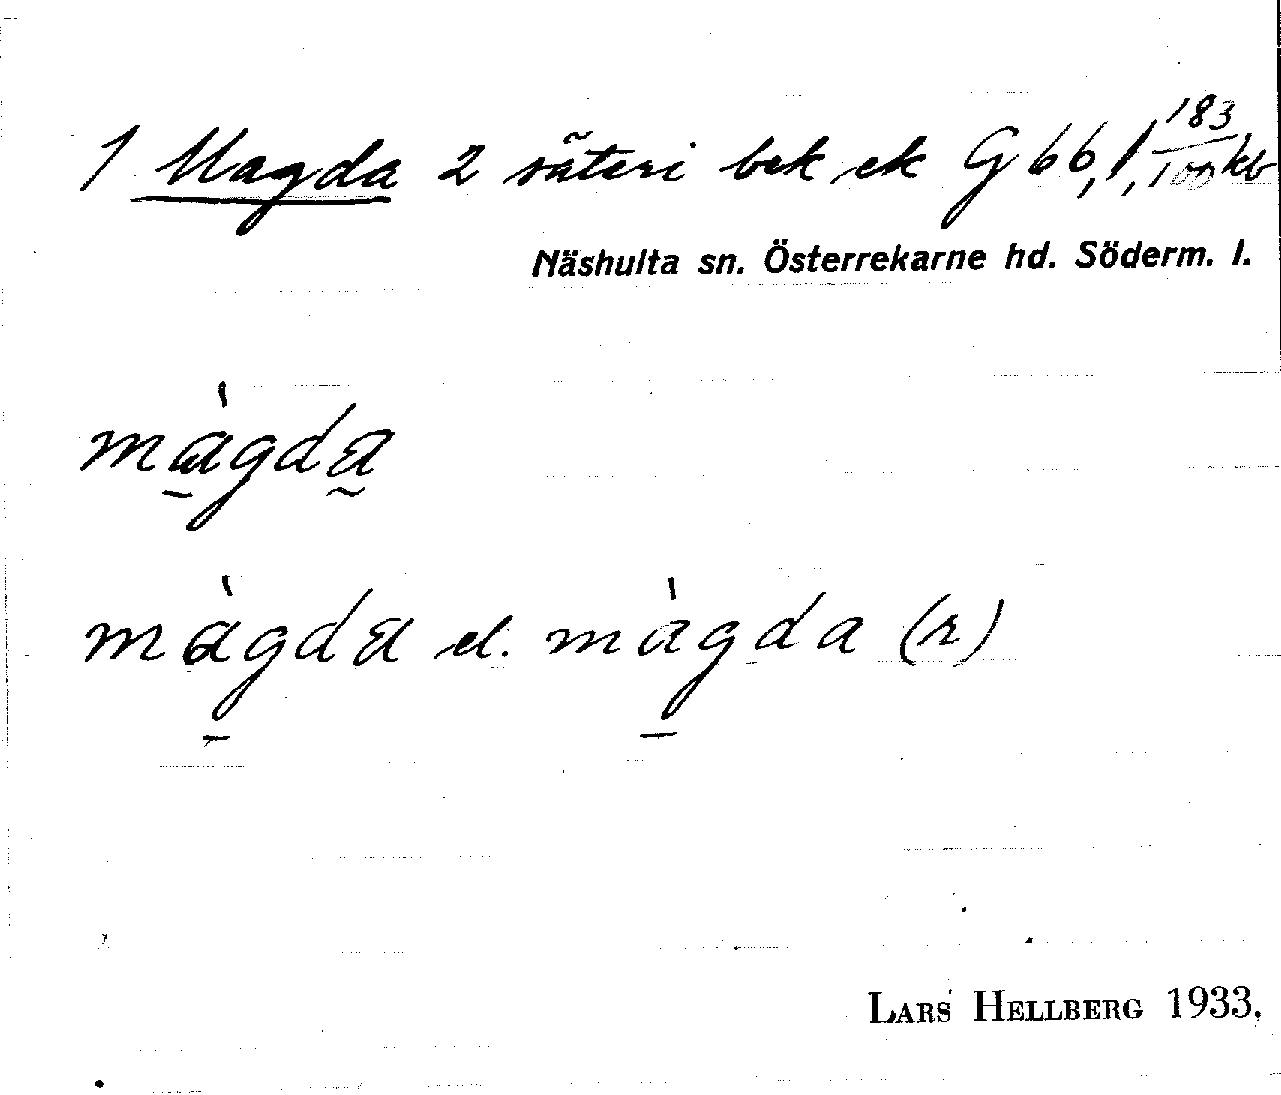 1 Magda 2 säteri bek ek G 66, 1, 183/100 kb
Näshulta sn. Österrekarne hd. Söderm. l.
màgda
màgda el. màgda (r)
LARS HELLBERG 1933.